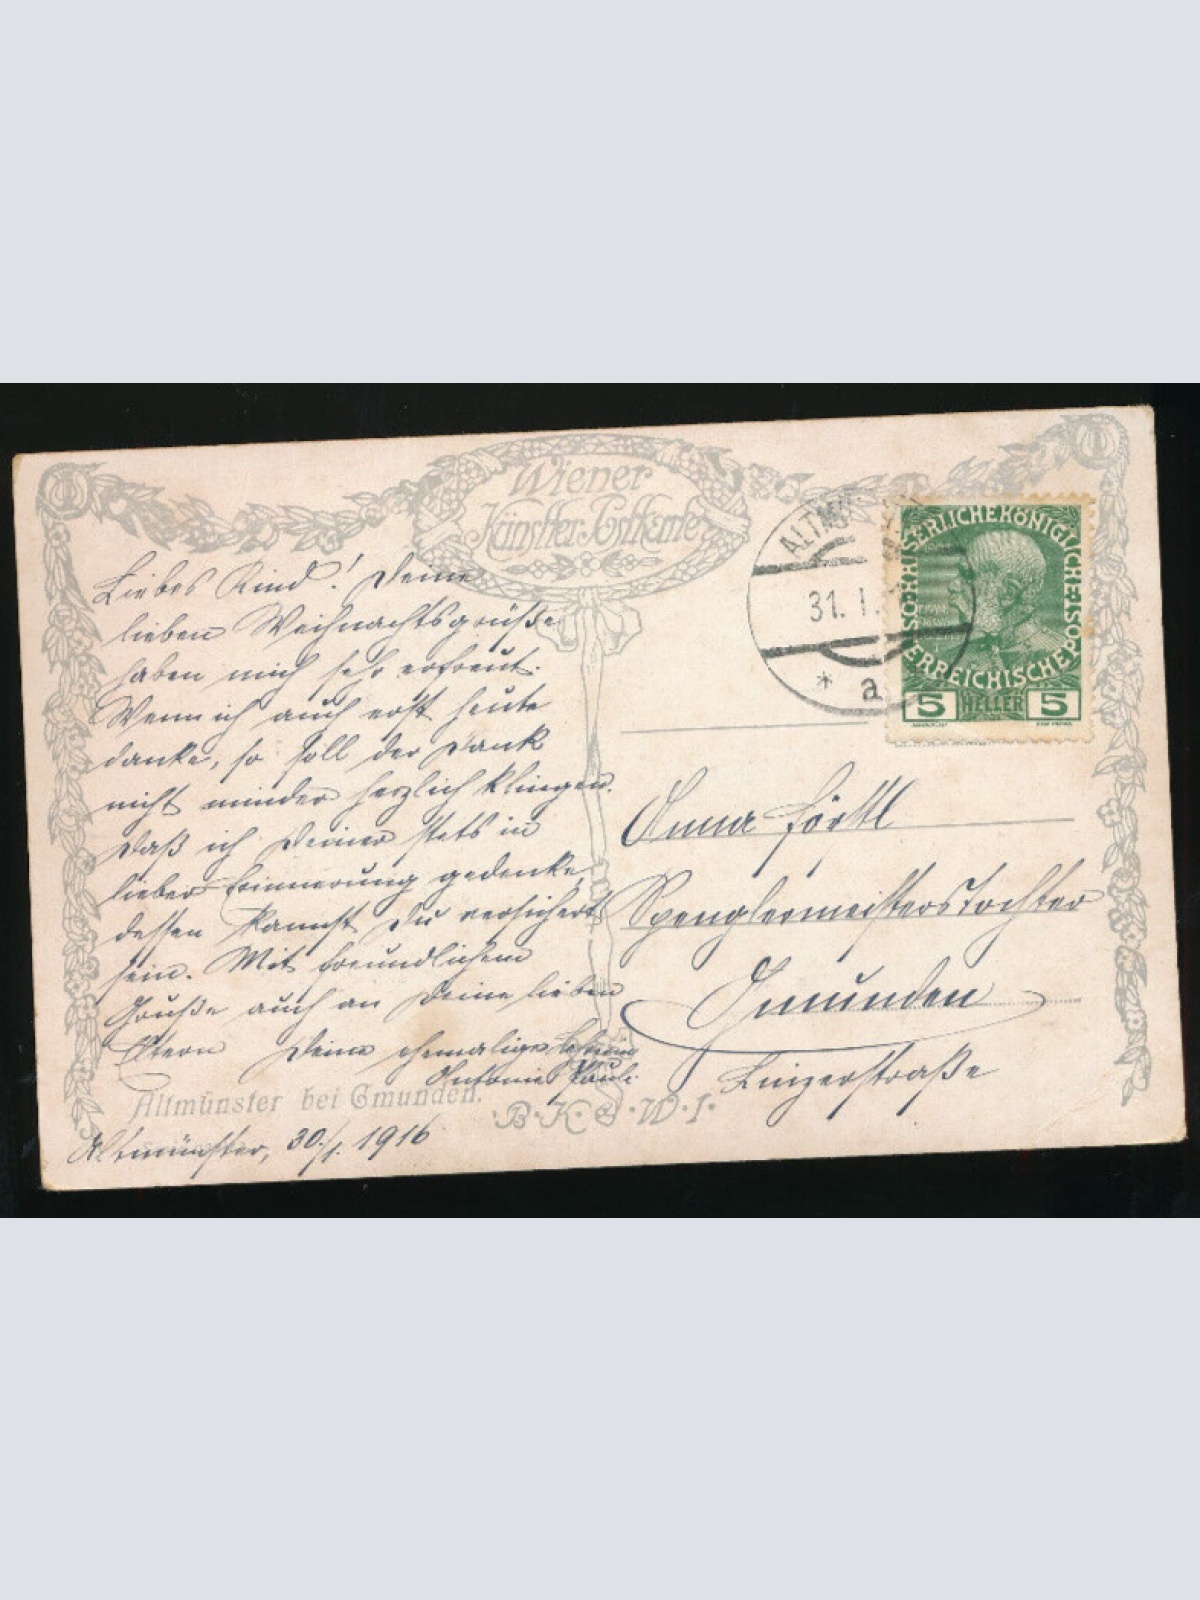 Wiener
Künstler-Postkarte
Liebes Kind! Deine
lieben Weihnachtsgrüße
haben mich sehr erfreut.
Wenn ich auch erst heute
danke, so soll der Dank
nicht minder herzlich klingen.
Daß ich Deiner stets in
lieber Erinnerung gedenke,
dessen kannst Du versichert
sein. Mit freundlichem
Gruße auch an Deine lieben
Eltern Deine ehemalige Lehrerin
Antonie Pauli
Altmünster bei Gmunden.
Altmünster, 30./1. 1916
B·K·W·I·
ALTMÜ
31. I.
* a
KAISERLICHE KÖNIGLICHE ÖSTERREICHISCHE POST
5 HELLER 5
Anna Förstl
Spenglermeisterstochter
Gmunden
Linzerstraße